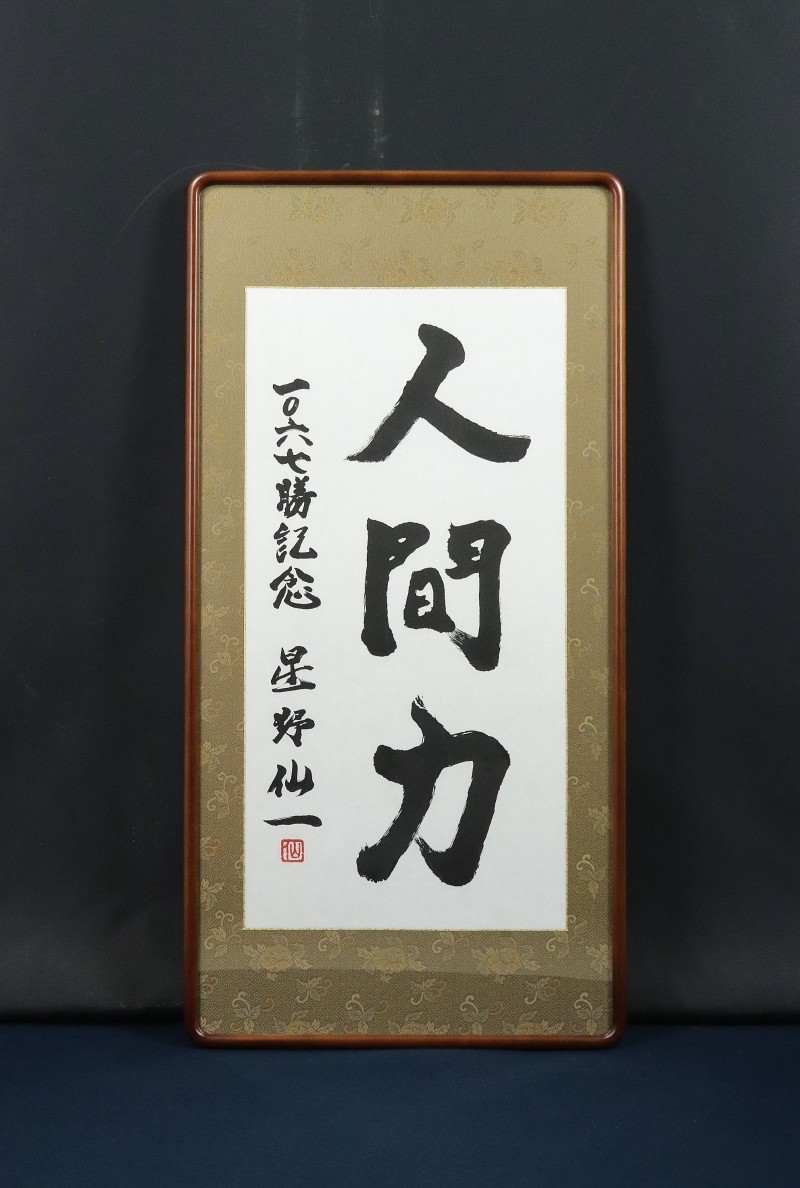 人間力
一〇六七勝記念 星野仙一
仙